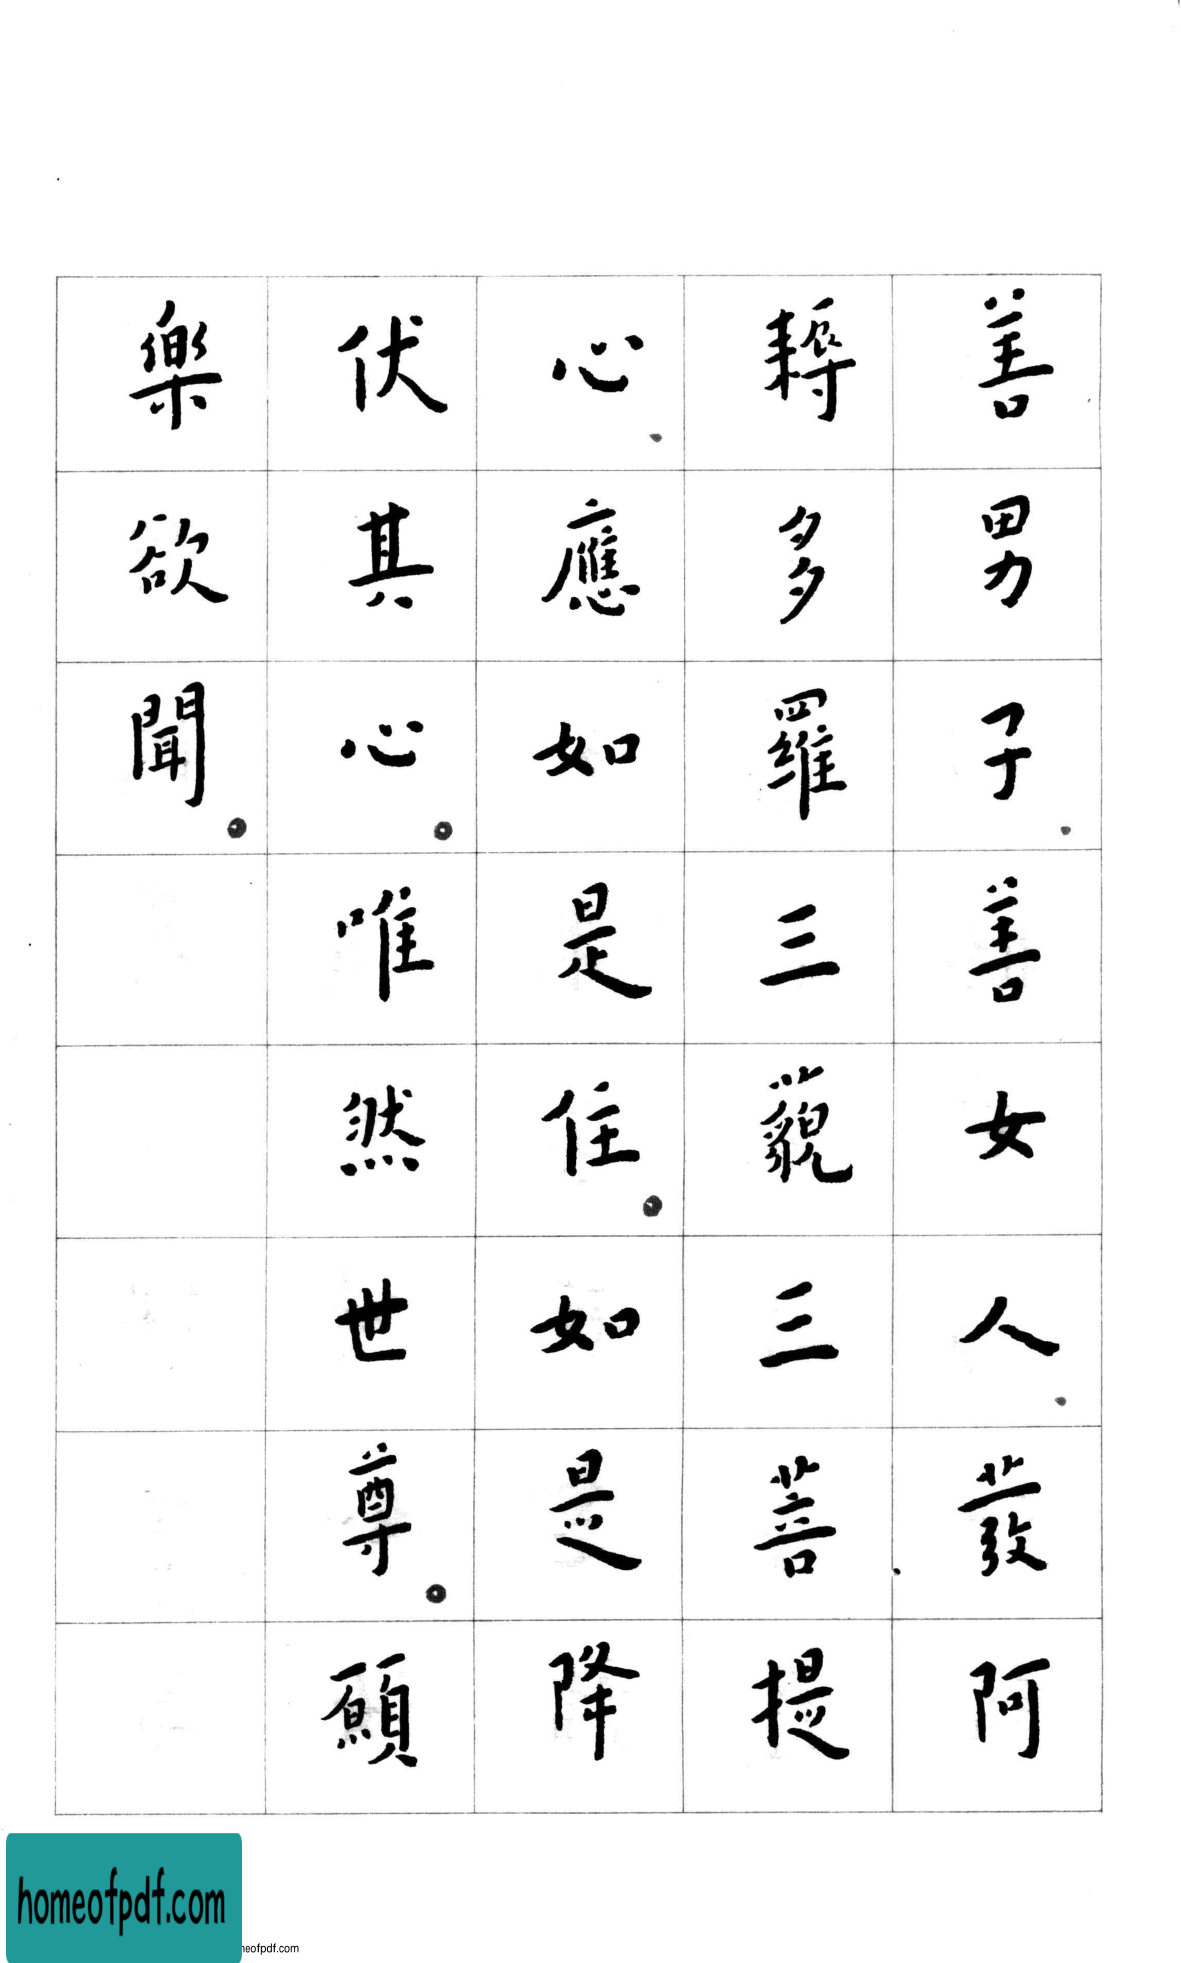 善男子．善女人．發阿
耨多羅三藐三菩提
心．應如是住。如是降
伏其心。唯然世尊。願
樂欲聞。
homeofpdf.com
neofpdf.com